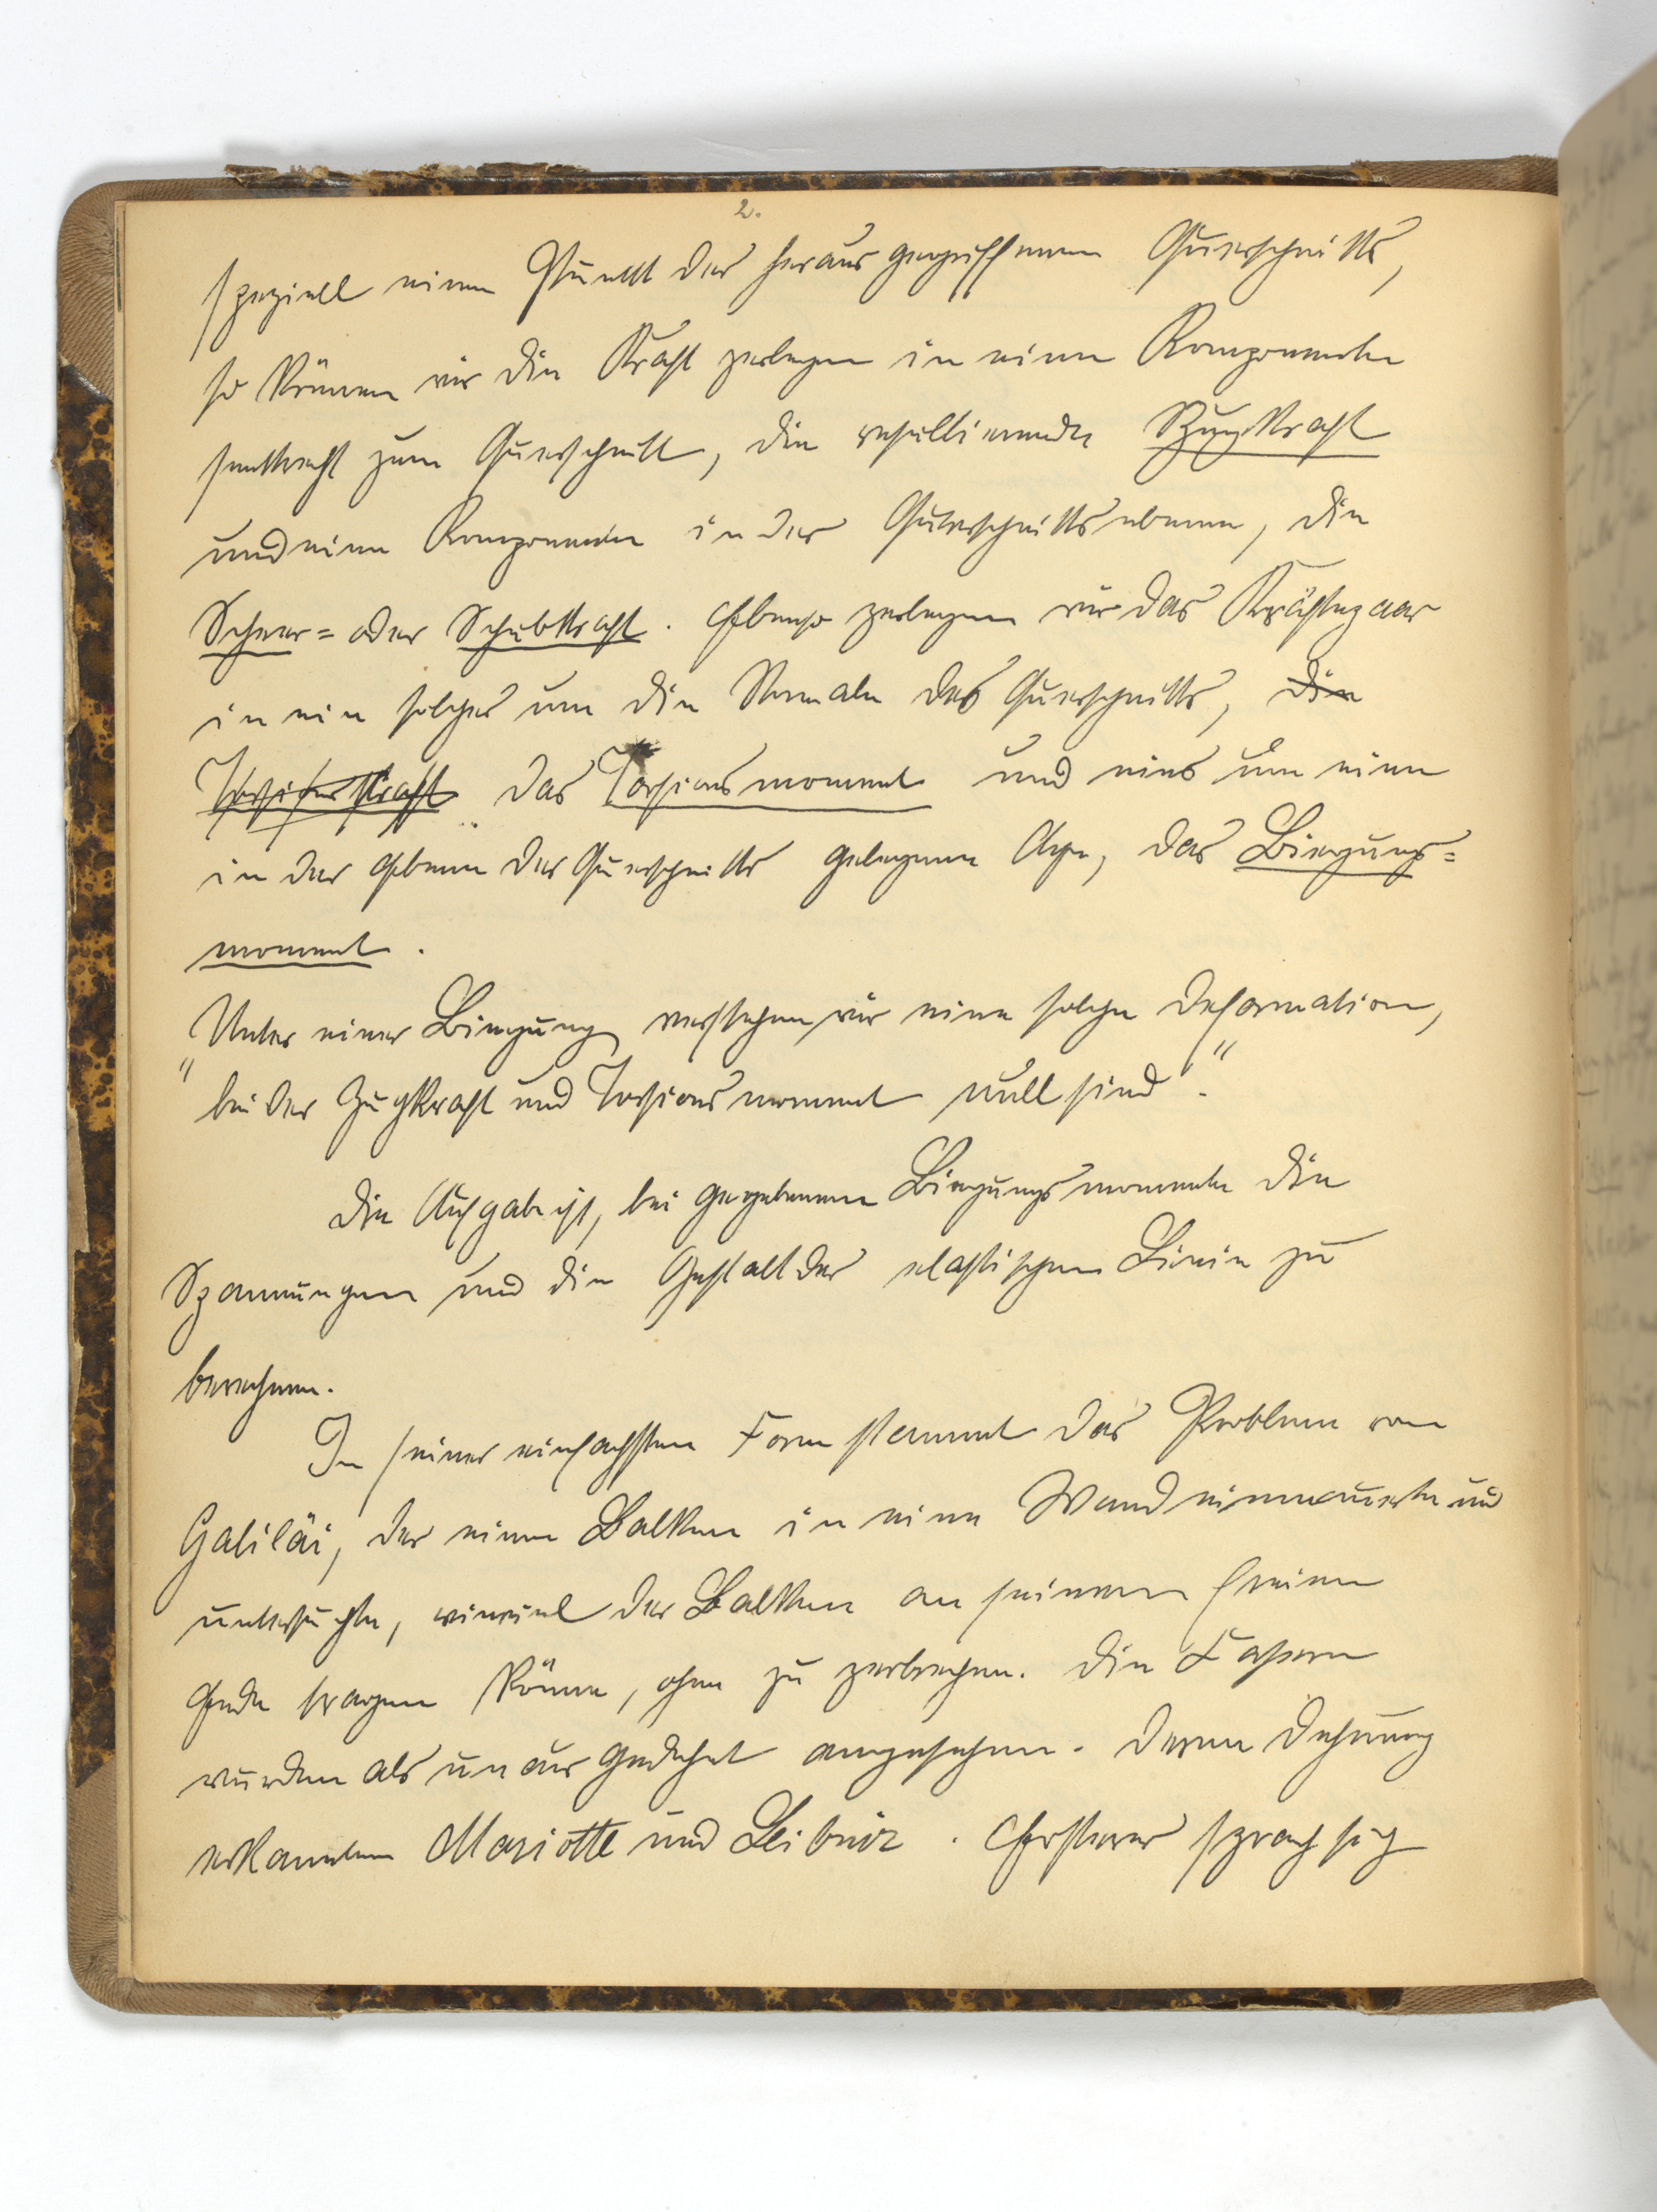 2.
speziell einen Punkt des herausgegriffenen Querschnitts,
so können wir die Kraft zerlegen in eine Komponente
senkrecht zum Querschnitt, die resultierende Zugkraft
und eine Komponente in der Querschnittsebene, die
Scheer= oder Schubkraft. Ebenso zerlegen wir das Kräftepaar
in ein solches um die Normale des Querschnitts, die
Torsionskraft das Torsionsmoment und eines um eine
in der Ebene des Querschnitts gelegene Axe, das Biegungs=
moment.
"Unter einer Biegung verstehen wir eine solche Deformation,
bei der Zugkraft und Torsionsmoment null sind".
Die Aufgabe ist, bei gegebenem Biegungsmomente die
Spannungen und die Gestalt der elastischen Linie zu
berechnen.
In seiner einfachsten Form stammt das Problem von
Galiläi, der einen Balken in eine Wand einmauerte und
untersuchte, wieviel der Balken an seinem freien
Ende tragen könne, ohne zu zerbrechen. Die Fasern
wurden als unausgedehnt angesehen. Deren Dehnung
erkannten Mariotte und Leibniz. Ersterer sprach sich